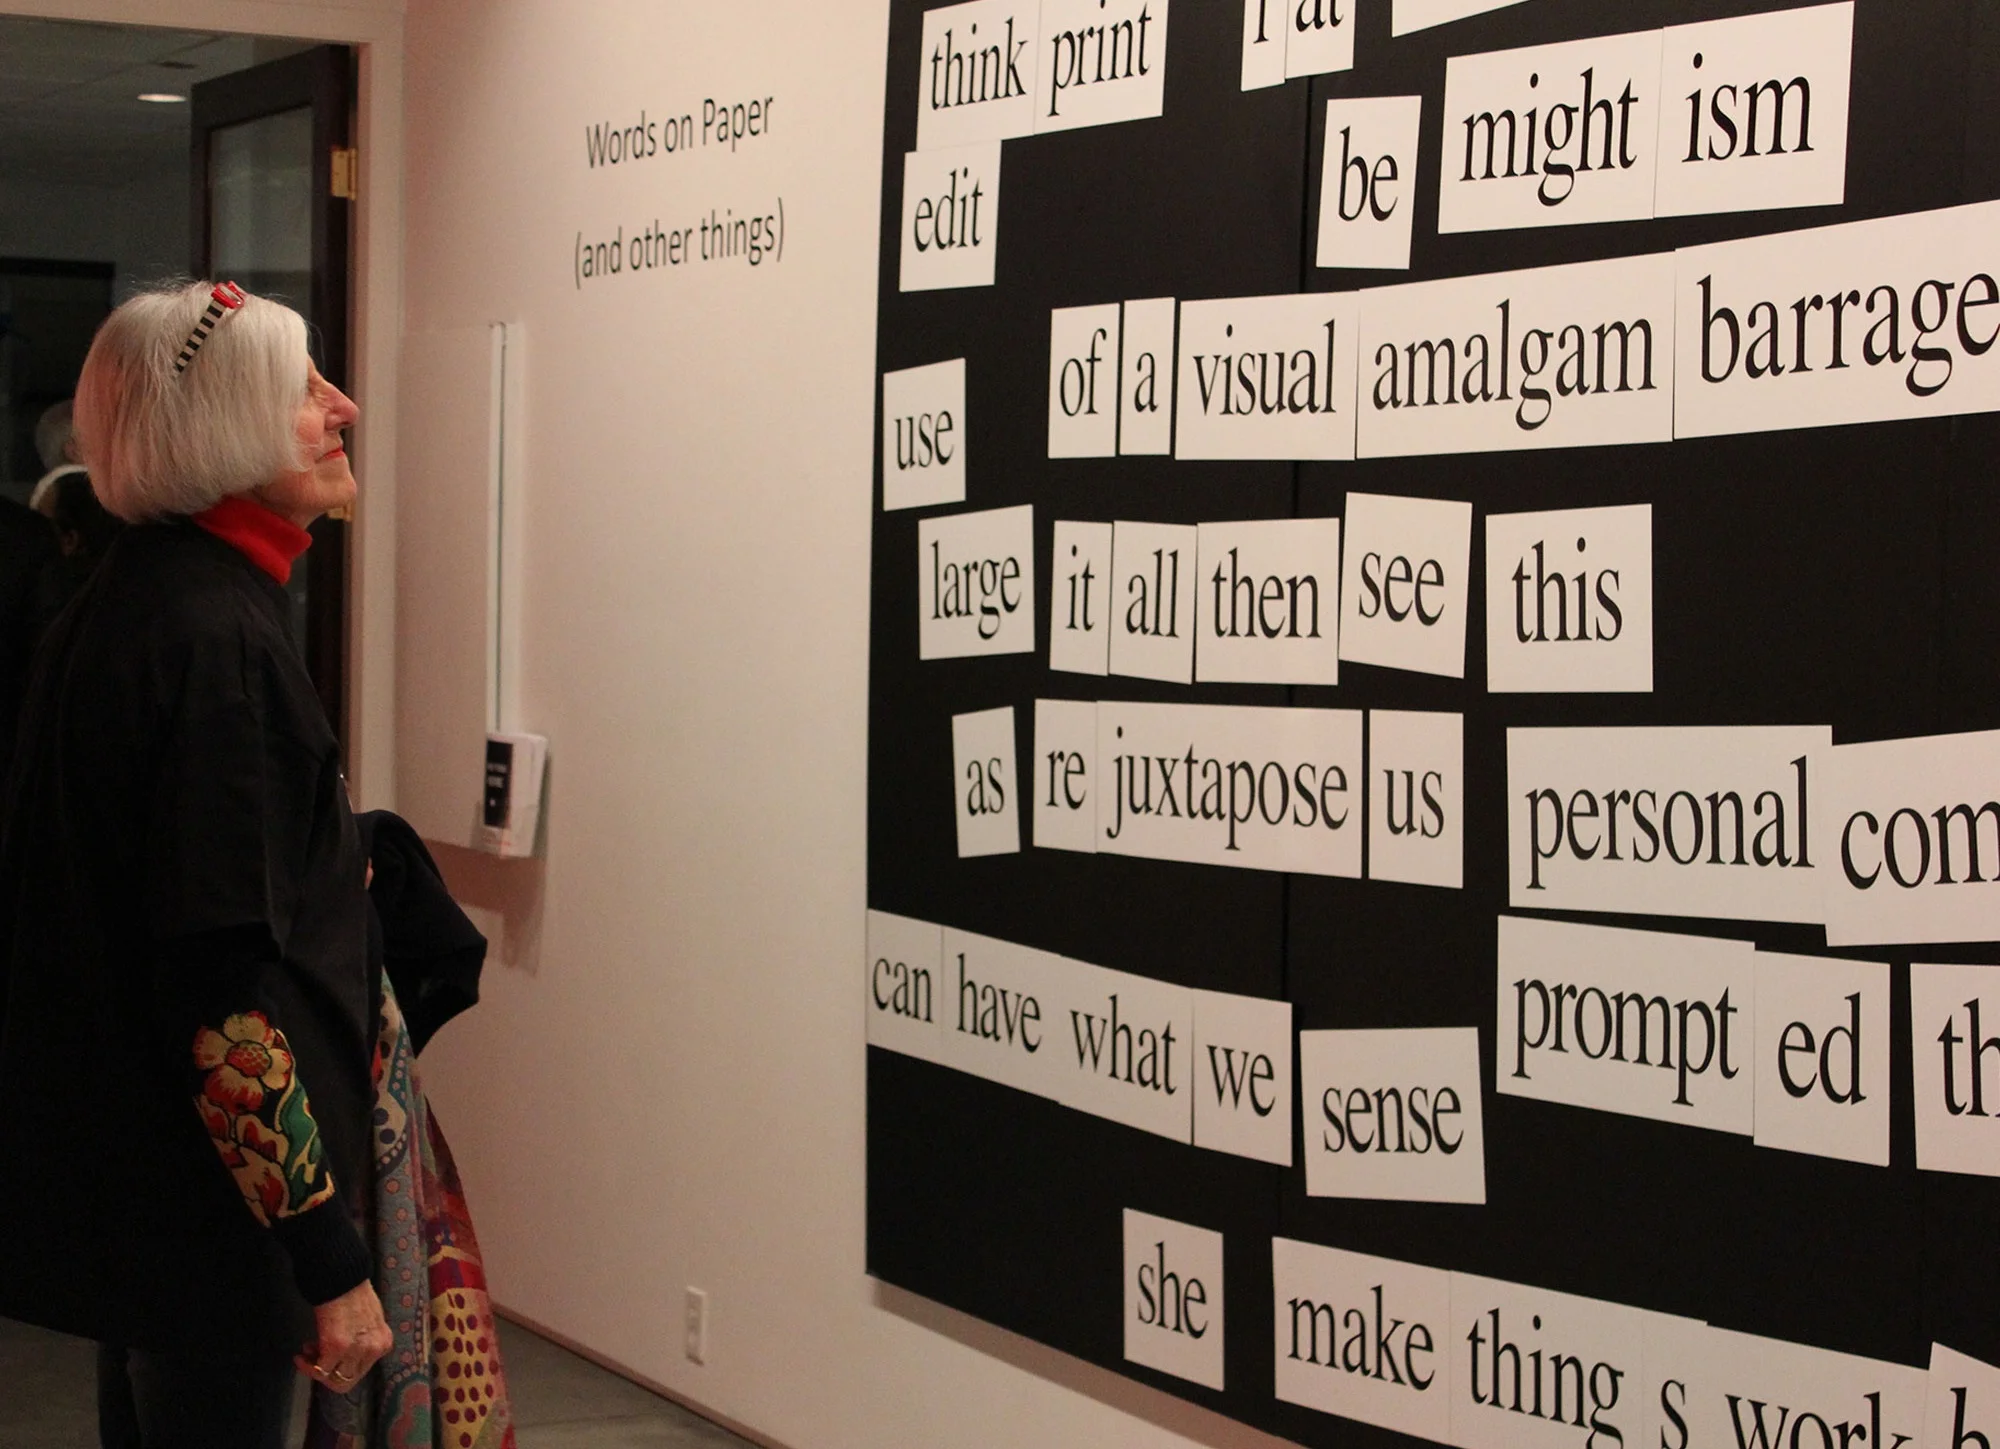 Words on Paper
(and other things)
think print
at
be might ism
edit
of a visual amalgam barrage
use
large it all then see this
as re juxtapose us
personal com
can have what we sense
prompt ed th
she make thing s work b